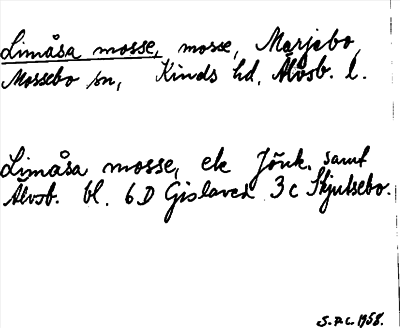 Limåsa mosse, mosse, Marjebo,
Mossebo sn, Kinds hd, Älvsb. l.
Limåsa mosse, ek Jönk. samt
Älvsb. bl. 6D Gislaved 3c Skjutsebo.
1958.